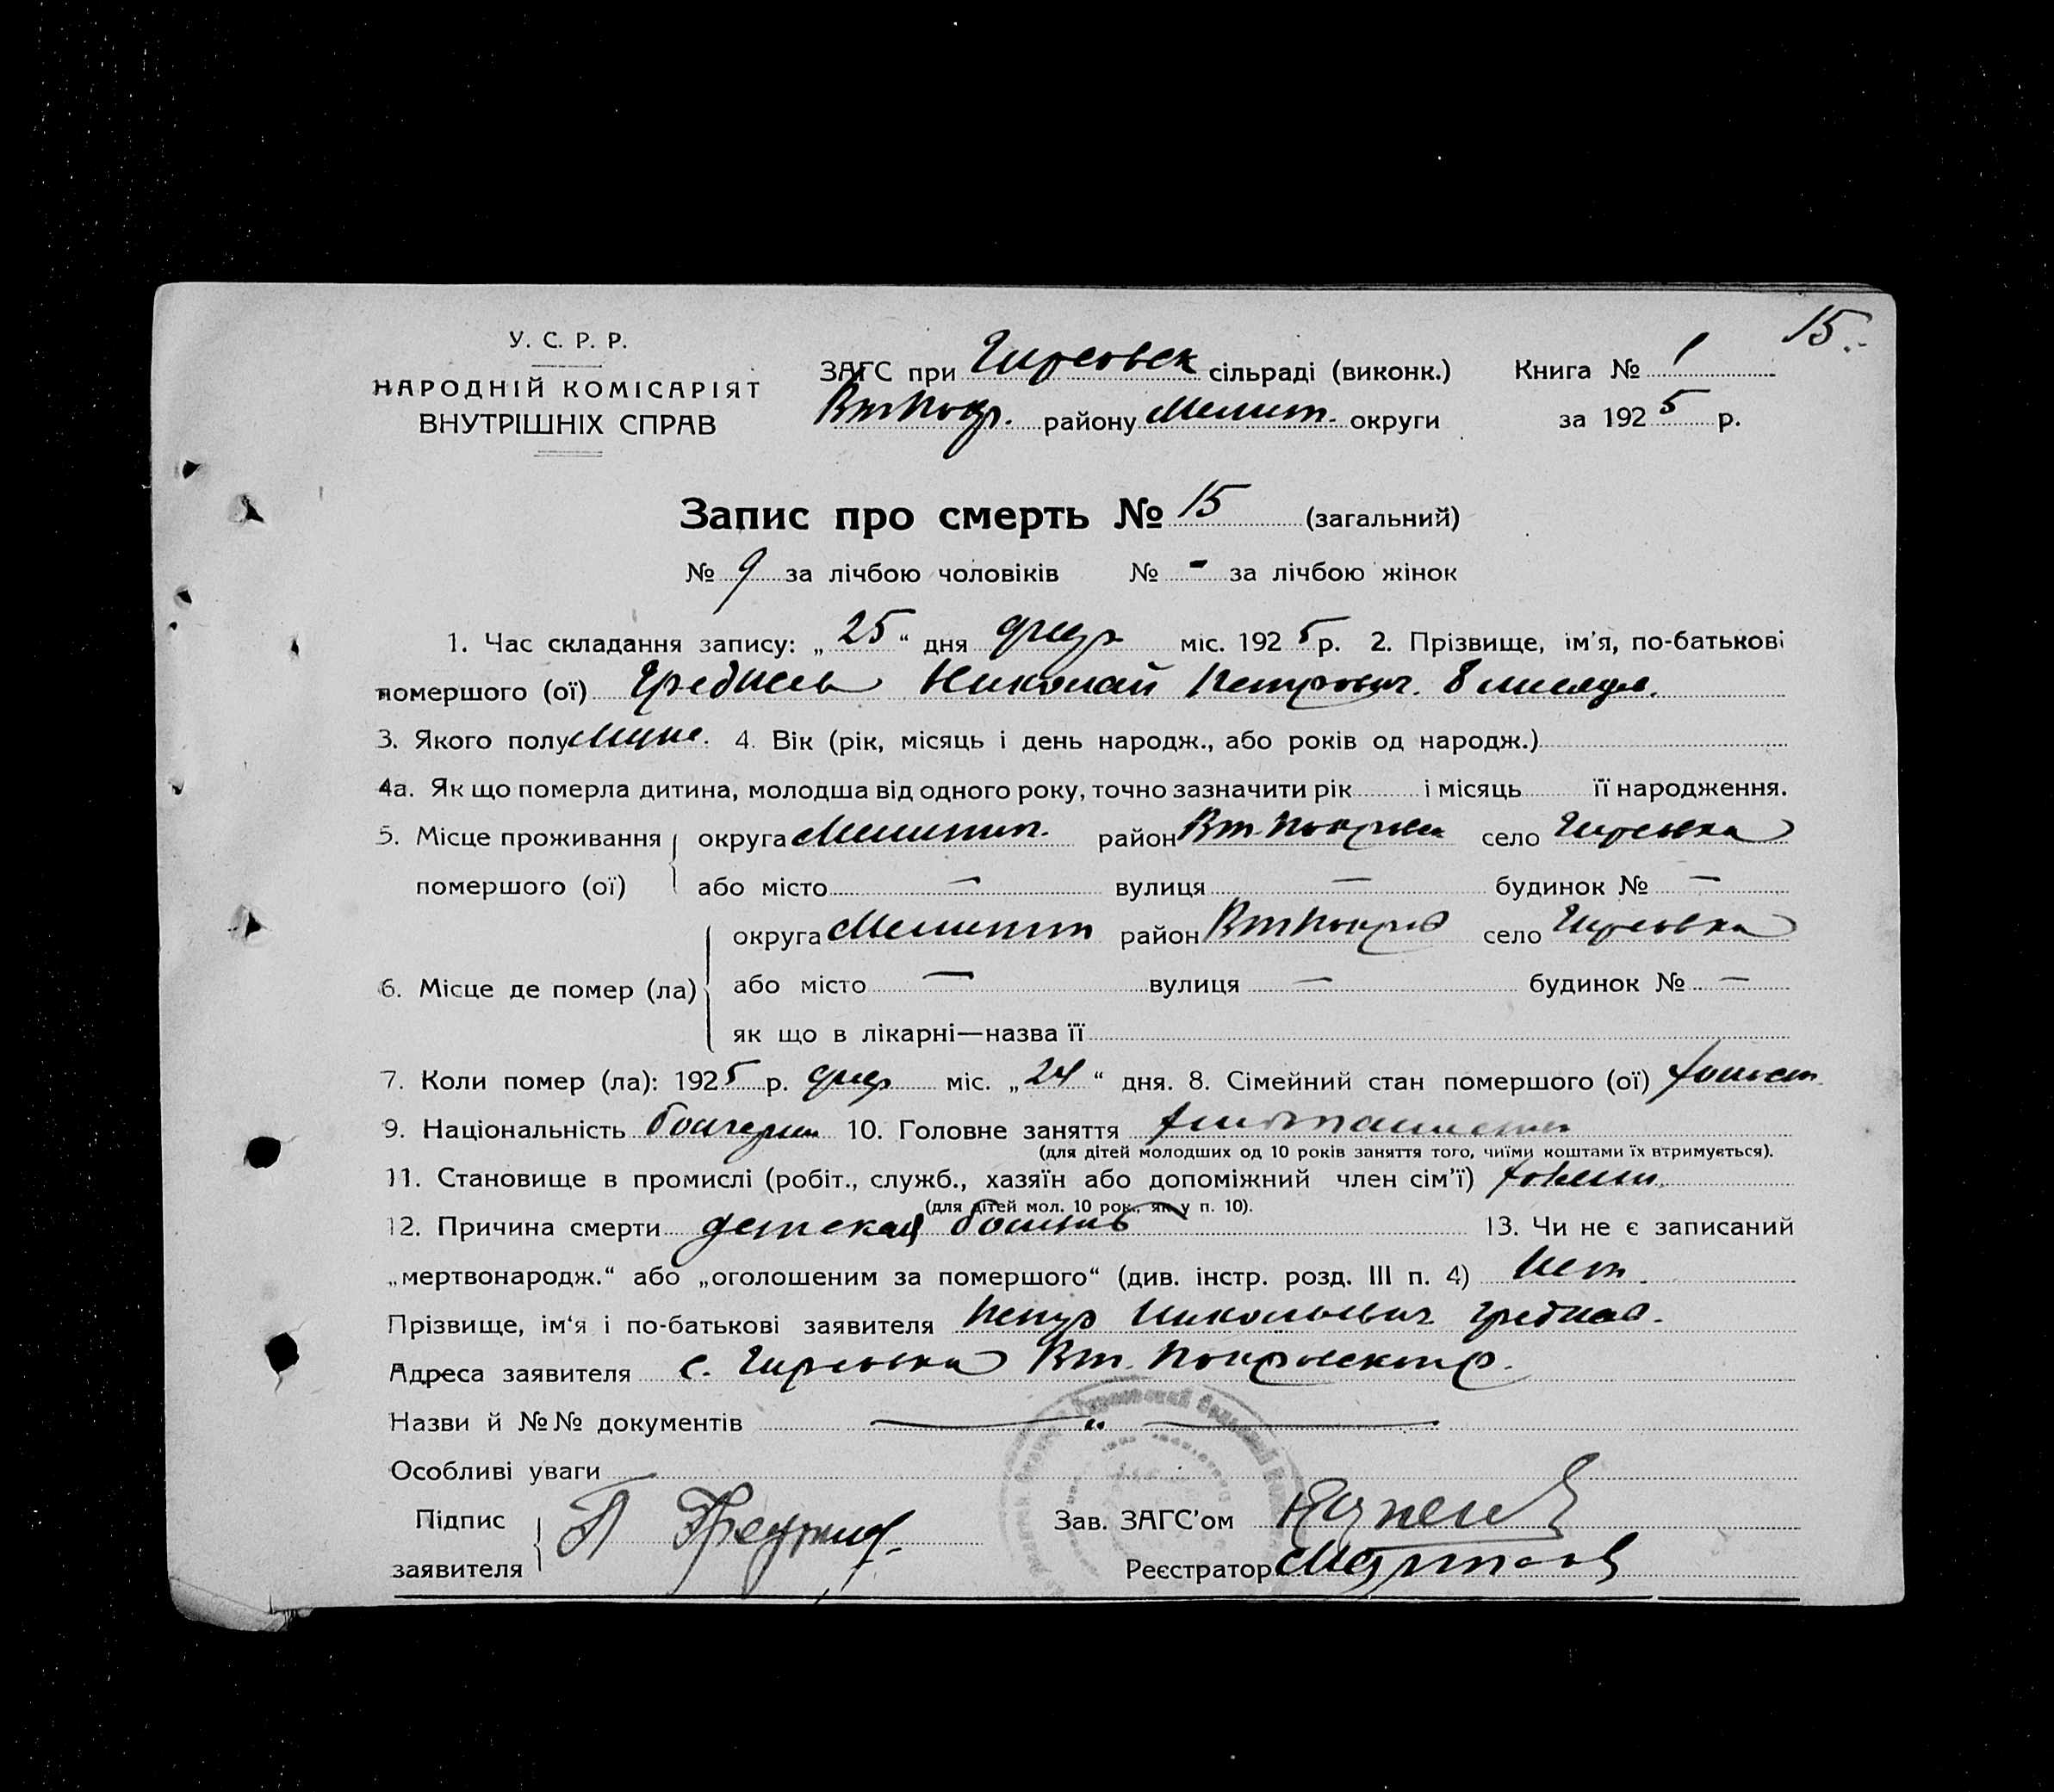 15.
У. С. Р. Р.
НАРОДНІЙ КОМІСАРІЯТ
ВНУТРІШНІХ СПРАВ
ЗАГС при Гирсовск сільраді (виконк.) Книга № 1
Вт Покр. району Мелит. округи за 1925 р.
Запис про смерть № 15 (загальний)
№ 9 за лічбою чоловіків № - за лічбою жінок
1. Час складання запису: „25“ дня февр міс. 1925 р. 2. Прізвище, ім'я, по-батькові
помершого (ої) Николай Петрович. 8 месяцев.
3. Якого полу Муже. 4. Вік (рік, місяць і день народж., або років од народж.)
4а. Як що померла дитина, молодша від одного року, точно зазначити рік і місяць її народження.
5. Місце проживання округа Мелитоп. район Вт. Покровск село Гирсовка
помершого (ої) або місто — вулиця — будинок № —
округа Мелитоп район Вт Покров село Гирсовка
6. Місце де помер (ла) або місто — вулиця — будинок № —
як що в лікарні—назва її
7. Коли помер (ла): 1925 р. февр міс. „24“ дня. 8. Сімейний стан помершого (ої) холост
9. Національність болгарин 10. Головне заняття хлебопашество
(для дітей молодших од 10 років заняття того, чиїми коштами їх втримується).
11. Становище в промислі (робіт., служб., хазяїн або допоміжний член сім'ї)
(для дітей мол. 10 рок., як у п. 10).
12. Причина смерти детская болезнь 13. Чи не є записаний
„мертвонародж.“ або „оголошеним за помершого“ (див. інстр. розд. III п. 4) Нет.
Прізвище, ім'я і по-батькові заявителя Петр Николаевич
Адреса заявителя с. Гирсовка Вт. Покровск р.
Назви й №№ документів — „ —
Особливі уваги
Підпис Зав. ЗАГС'ом
заявителя П Реєстратор